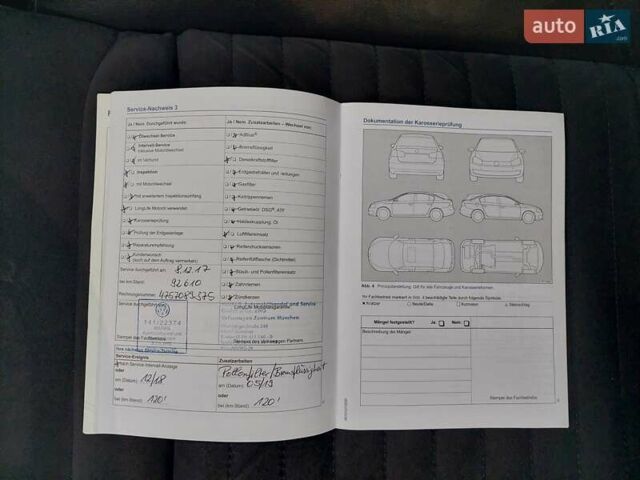 auto RIA.com
Service-Nachweis 3
Ja / Nein Durchgeführt wurde:
Ölwechsel-Service
Intervall-Service
inklusive Motorölwechsel
im Verbund
Inspektion
mit Motorölwechsel
mit erweitertem Inspektionsumfang
LongLife Motoröl verwendet
Karosserieprüfung
Prüfung der Endganlage
Reparaturempfehlung
Kundenwunsch
(soll auf dem Auftrag vermerken)
Service durchgeführt am: 8.12.17
bei km-Stand: 92610
Rechnungsnummer: 4757083575
Service durchgeführt
Stempel des
Ihre nächsten Service-Termine
Service-Ereignis
Nach Service-Intervall-Anzeige
oder
am (Datum) 12/18
oder
bei (km-Stand) 120'
Ja / Nein Zusatzarbeiten – Wechsel von:
AdBlue®
Bremsflüssigkeit
Dieselkraftstofffilter
Erdgasbehälter und -leitungen
Gasfilter
Keilrippenriemen
Getriebeöl DSG®, ATF
Haldexkupplung, Öl
Luftfiltereinsatz
Reifendruckensoren
Reifenfüllflasche (Dichtmittel)
Staub- und Pollenfiltereinsatz
Zahnriemen
Zündkerzen
LongLife Mobilitätsgarantie
Volkswagen Zentrum München
Stempel des Volkswagen Partners
Zusatzarbeiten
Pollenfilter/Bremsflüssigkeit
am (Datum) 03/19
oder
bei (km-Stand) 120'
Dokumentation der Karosserieprüfung
Abb. 4 Prinzipdarstellung: Gilt für alle Fahrzeuge und Karosserieformen.
Ihr Fachbetrieb markiert in Abb. 4 beschädigte Teile durch folgende Symbole:
Kratzer Beule/Delle Korrosion Steinschlag
Mängel festgestellt? Ja Nein
Beschreibung der Mängel
Stempel des Fachbetriebs